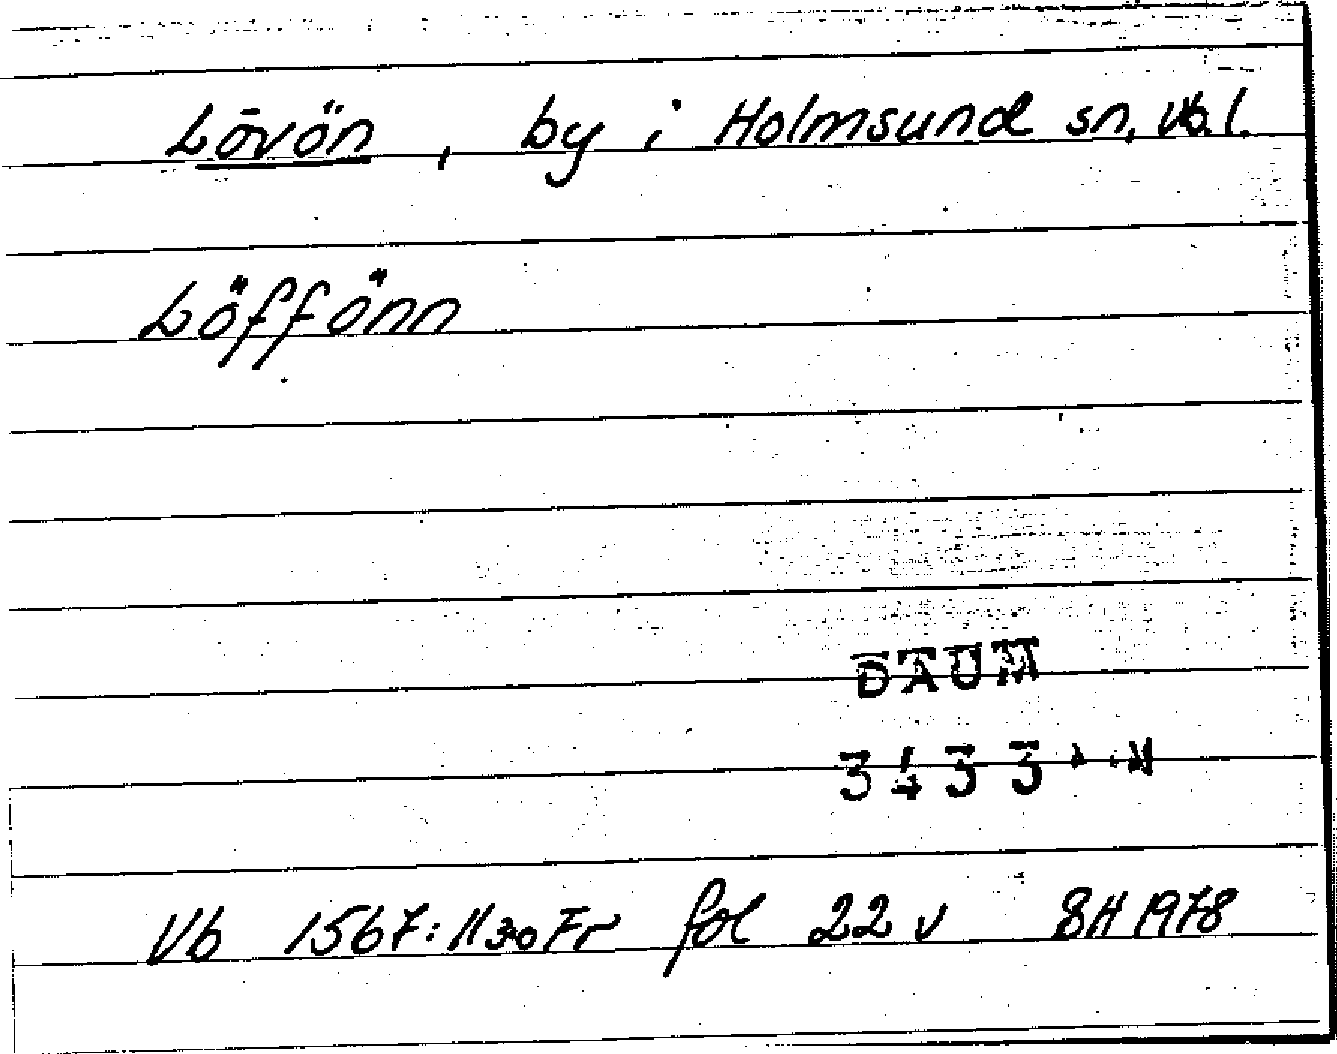 Lövön, by i Holmsund sn, Vb. l.
Löffönn
DAUM
3433
Vb 1567:11 30 Fr fol 22 v BH 1978